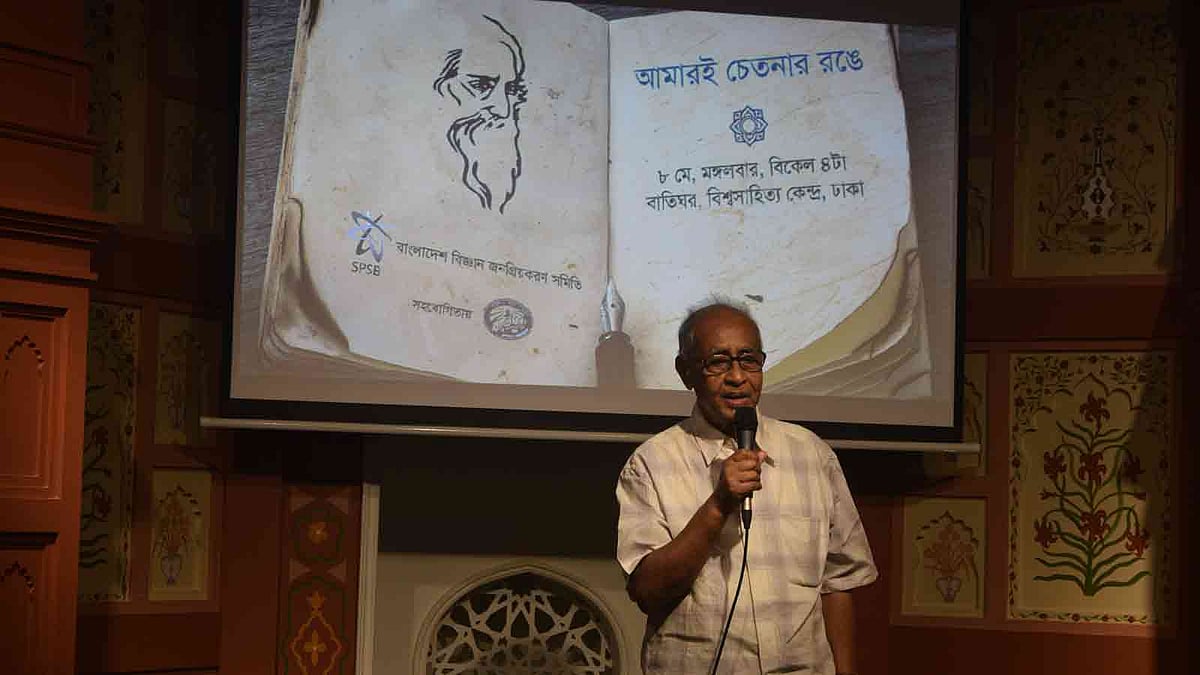 আমারই চেতনার রঙে
৮ মে, মঙ্গলবার, বিকেল ৪টা
বাতিঘর, বিশ্বসাহিত্য কেন্দ্র, ঢাকা
SPSB
বাংলাদেশ বিজ্ঞান জনপ্রিয়করণ সমিতি
সহযোগিতায়